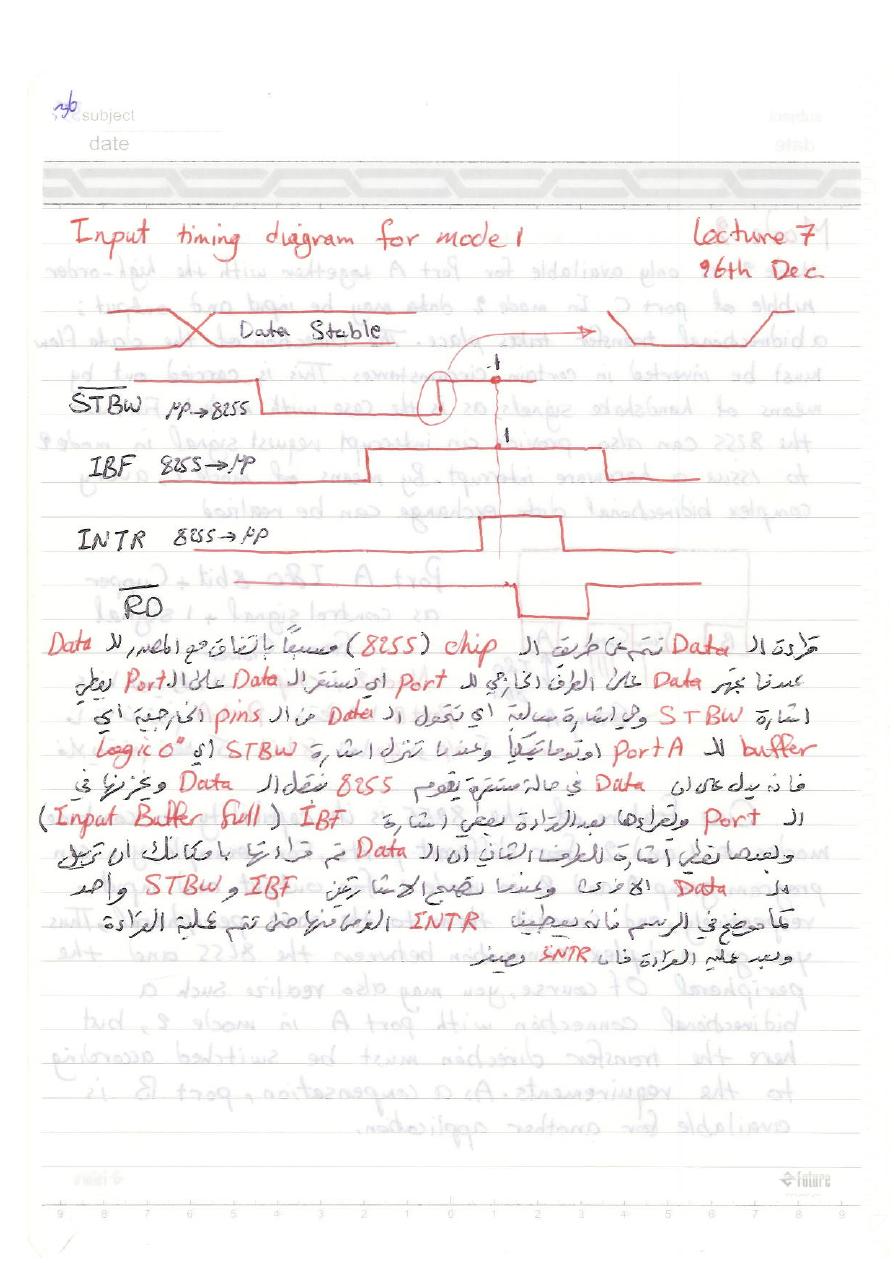 subject
date
Input timing diagram for mode 1
Lecture 7
26th Dec.
Data Stable
STBW μP→8255
1
IBF 8255→μP
1
INTR 8255→μP
RD
قراءة الـ Data تتم عن طريق الـ chip (8255) ومسبقاً باتفاق مع المصدر للـ Data
عندما يجهز Data على الطرف الخارجي للـ Port اي تستقر الـ Data على الـ Port يعطي
اشارة STBW وهي اشارة سالبة أي تتحول الـ Data من الـ pins الخارجية أي
buffer للـ Port A اوتوماتيكياً وعندما تنزل اشارة STBW أي "Logic 0
فانه يدل على ان Data في حالة مستقرة يقوم 8255 بنقل الـ Data ويخزنها في
الـ Port وقراءها بعد القراءة يعطي اشارة IBF (Input Buffer full)
وبعدها تعطي اشارة للطرف الثاني أن الـ Data تم قراءتها بامكانك ان ترسل
الـ Data الاخرى وعندما تصبح الاشارتين IBF و STBW واحد
كما موضح في الرسم فانه يعطينا INTR الغرض منها حتى تتم عملية القراءة
وبعد عملية القراءة فان INTR يصفر
future
9 8 7 6 5 4 3 2 1 0 1 2 3 4 5 6 7 8 9